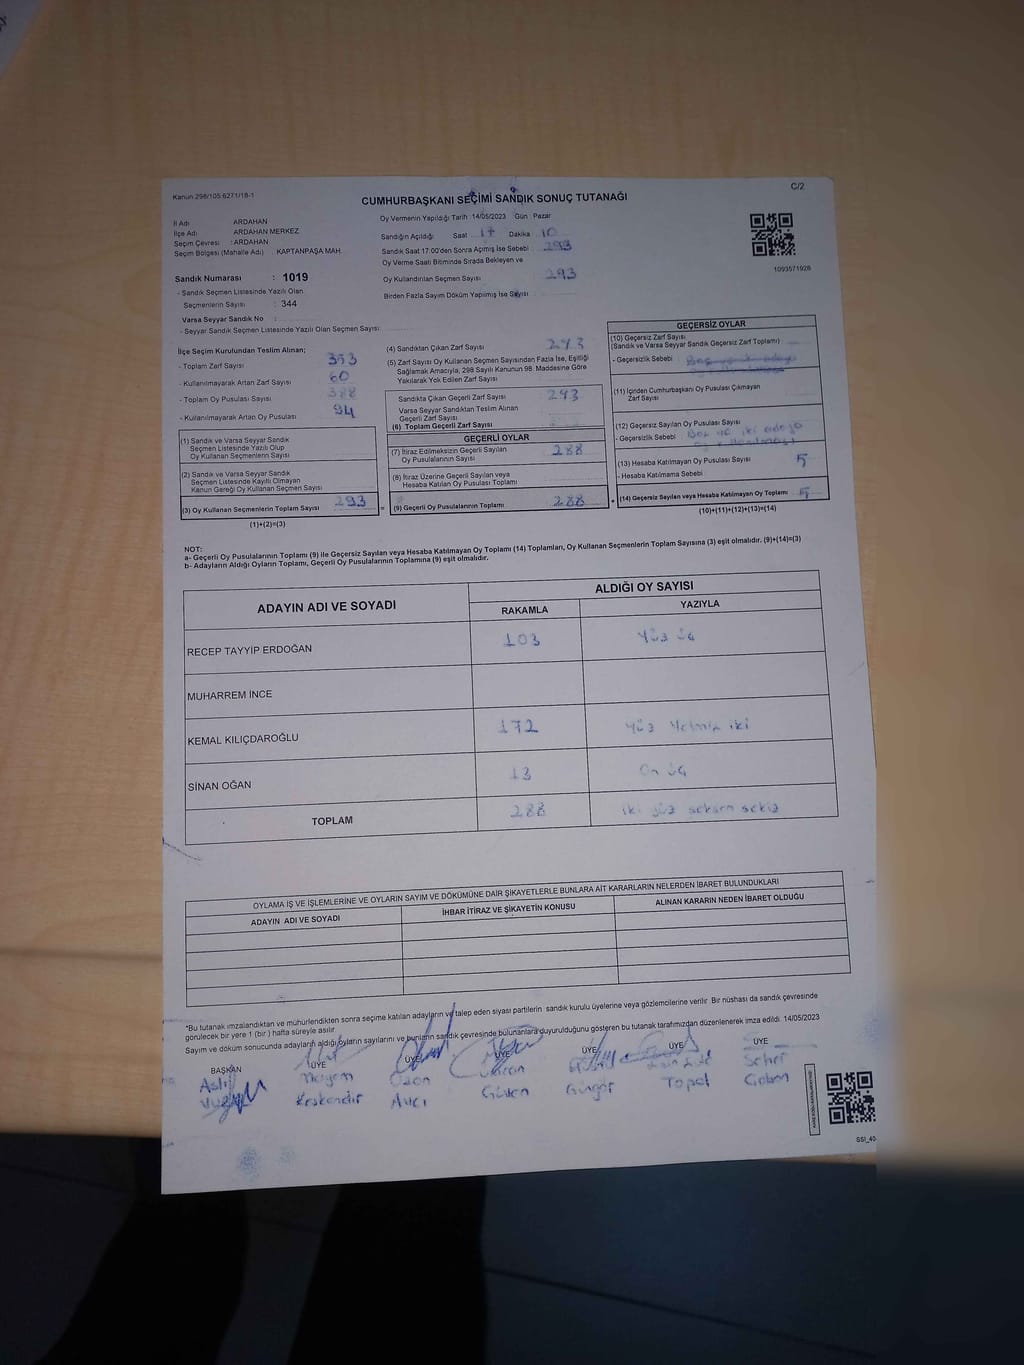 Kanun 298/105 6271/18-1
C/2
CUMHURBAŞKANI SEÇİMİ SANDIK SONUÇ TUTANAĞI
İl Adı ARDAHAN
İlçe Adı ARDAHAN MERKEZ
Seçim Çevresi : ARDAHAN
Seçim Bölgesi (Mahalle Adı) . KAPTANPAŞA MAH.
Sandık Numarası : 1019
- Sandık Seçmen Listesinde Yazılı Olan
Seçmenlerin Sayısı : 344
Varsa Seyyar Sandık No :
- Seyyar Sandık Seçmen Listesinde Yazılı Olan Seçmen Sayısı
Oy Vermenin Yapıldığı Tarih 14/05/2023 Gün Pazar
Sandığın Açıldığı Saat 17 Dakika 10
Sandık Saat 17:00'den Sonra Açımış İse Sebebi 293
Oy Verme Saati Bitiminde Sırada Bekleyen ve
Oy Kullandırılan Seçmen Sayısı 293
Birden Fazla Sayım Döküm Yapılmış İse Sayısı
1093571928
İlçe Seçim Kurulundan Teslim Alınan;
- Toplam Zarf Sayısı 353
- Kullanılmayarak Artan Zarf Sayısı 60
- Toplam Oy Pusulası Sayısı 388
- Kullanılmayarak Artan Oy Pusulası 94
(1) Sandık ve Varsa Seyyar Sandık
Seçmen Listesinde Yazılı Olup
Oy Kullanan Seçmenlerin Sayısı
(2) Sandık ve Varsa Seyyar Sandık
Seçmen Listesinde Kayıtlı Olmayan
Kanun Gereği Oy Kullanan Seçmen Sayısı
(3) Oy Kullanan Seçmenlerin Toplam Sayısı 293
(1)+(2)=(3)
(4) Sandıktan Çıkan Zarf Sayısı 293
(5) Zarf Sayısı Oy Kullanan Seçmen Sayısından Fazla İse, Eşitliği
Sağlamak Amacıyla, 298 Sayılı Kanunun 98. Maddesine Göre
Yakılarak Yok Edilen Zarf Sayısı
Sandıkta Çıkan Geçerli Zarf Sayısı 293
Varsa Seyyar Sandıktan Teslim Alınan
Geçerli Zarf Sayısı
(6) Toplam Geçerli Zarf Sayısı
GEÇERLİ OYLAR
(7) İtiraz Edilmeksizin Geçerli Sayılan
Oy Pusulalarının Sayısı 288
(8) İtiraz Üzerine Geçerli Sayılan veya
Hesaba Katılan Oy Pusulası Toplamı
(9) Geçerli Oy Pusulalarının Toplamı 288
GEÇERSİZ OYLAR
(10) Geçersiz Zarf Sayısı
(Sandık ve Varsa Seyyar Sandık Geçersiz Zarf Toplamı)
- Geçersizlik Sebebi
(11) İçinden Cumhurbaşkanı Oy Pusulası Çıkmayan
Zarf Sayısı
(12) Geçersiz Sayılan Oy Pusulası Sayısı
- Geçersizlik Sebebi Boş ve iki adaya
(13) Hesaba Katılmayan Oy Pusulası Sayısı 5
- Hesaba Katılmama Sebebi
(14) Geçersiz Sayılan veya Hesaba Katılmayan Oy Toplamı 5
(10)+(11)+(12)+(13)=(14)
NOT:
a- Geçerli Oy Pusulalarının Toplamı (9) ile Geçersiz Sayılan veya Hesaba Katılmayan Oy Toplamı (14) Toplamları, Oy Kullanan Seçmenlerin Toplam Sayısına (3) eşit olmalıdır. (9)+(14)=(3)
b- Adayların Aldığı Oyların Toplamı, Geçerli Oy Pusulalarının Toplamına (9) eşit olmalıdır.
ADAYIN ADI VE SOYADI
ALDIĞI OY SAYISI
RAKAMLA YAZIYLA
RECEP TAYYİP ERDOĞAN 103 Yüz üç
MUHARREM İNCE
KEMAL KILIÇDAROĞLU 172 Yüz Yetmiş iki
SİNAN OĞAN 13 On üç
TOPLAM 288 iki yüz seksen sekiz
OYLAMA İŞ VE İŞLEMLERİNE VE OYLARIN SAYIM VE DÖKÜMÜNE DAİR ŞİKAYETLERLE BUNLARA AİT KARARLARIN NELERDEN İBARET BULUNDUKLARI
ADAYIN ADI VE SOYADI İHBAR İTİRAZ VE ŞİKAYETİN KONUSU ALINAN KARARIN NEDEN İBARET OLDUĞU
*Bu tutanak imzalandıktan ve mühürlendikten sonra seçime katılan adayların ve talep eden siyasi partilerin sandık kurulu üyelerine veya gözlemcilerine verilir. Bir nüshası da sandık çevresinde
görülecek bir yere 1 (bir) hafta süreyle asılır.
Sayım ve döküm sonucunda adayların aldığı oyların sayılarını ve bunların sandık çevresinde bulunanlara duyurulduğunu gösteren bu tutanak tarafımızdan düzenlenerek imza edildi. 14/05/2023
BAŞKAN ÜYE ÜYE ÜYE ÜYE ÜYE ÜYE
Aslı Meryem Ozan Seher
Keskendir Avcı Güven Güngör Topal
SSI_40